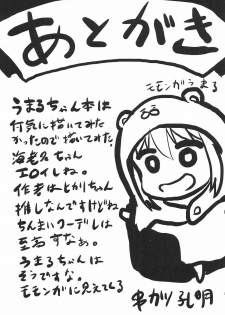 あとがき
モモンガうまる
うまるちゃん本は
付気に描いてみた
かったので描いてみた
海老名ちゃん
エロイしね。
作者はきりちゃん
推しなんですけどね
ちんまいクーデレは
至高すなぁ。
うまるちゃんは
そうですな。
モモンガに見えてくる
串カツ孔明